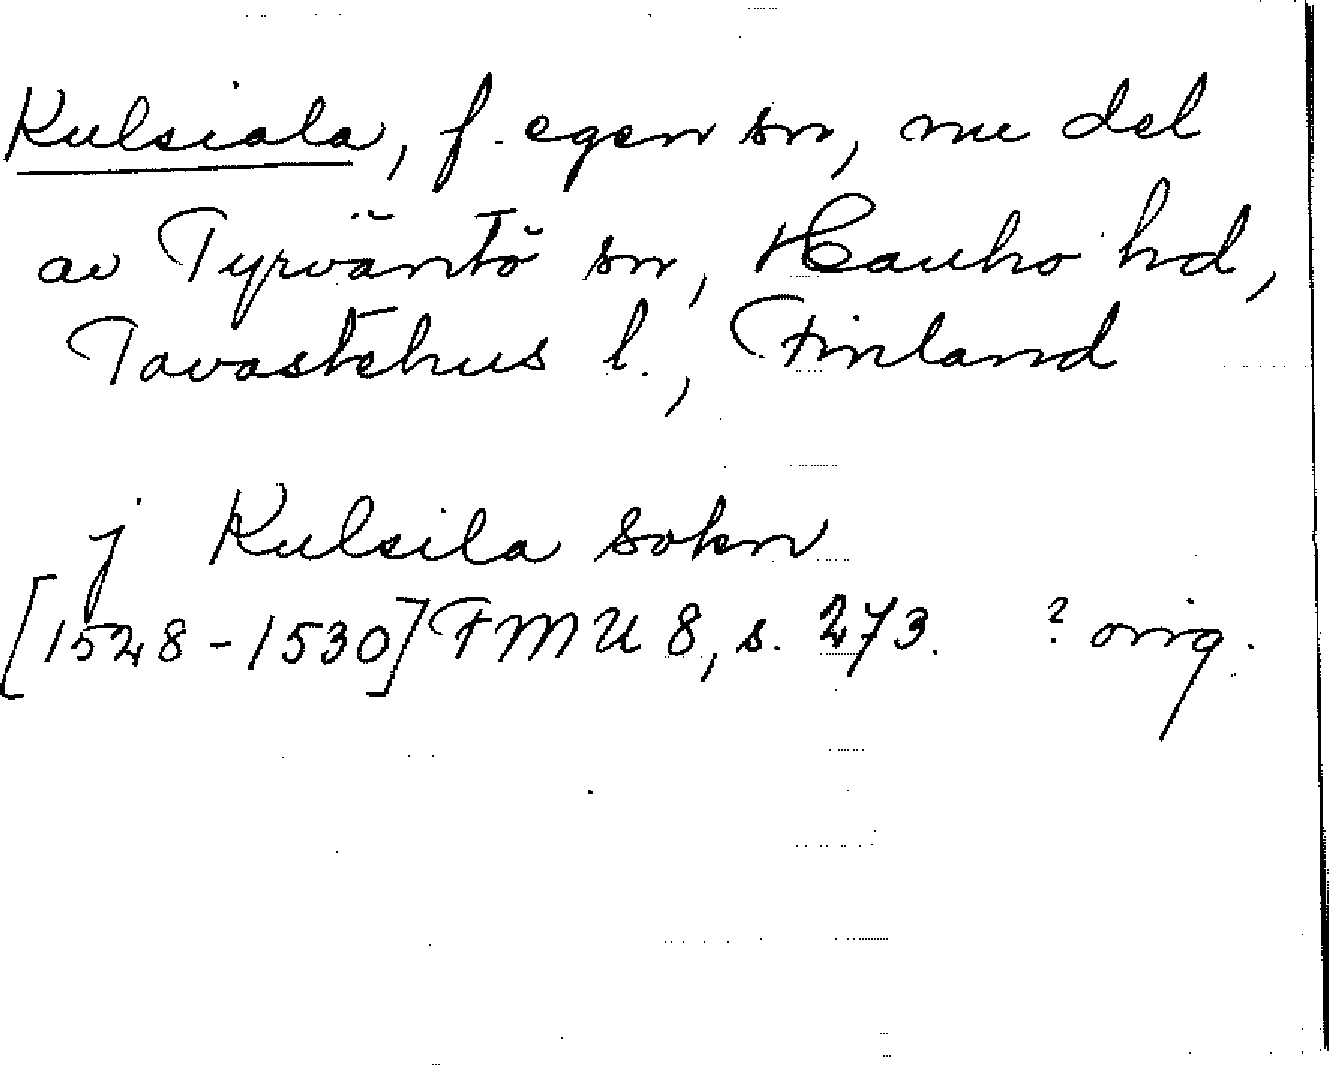 Kulsiala, f. egen sn, nu del
av Tyrväntö sn, Hauho hd,
Tavastehus l., Finland
j Kulsila sokn
[1528-1530] FMU 8, s. 273. ? orig.